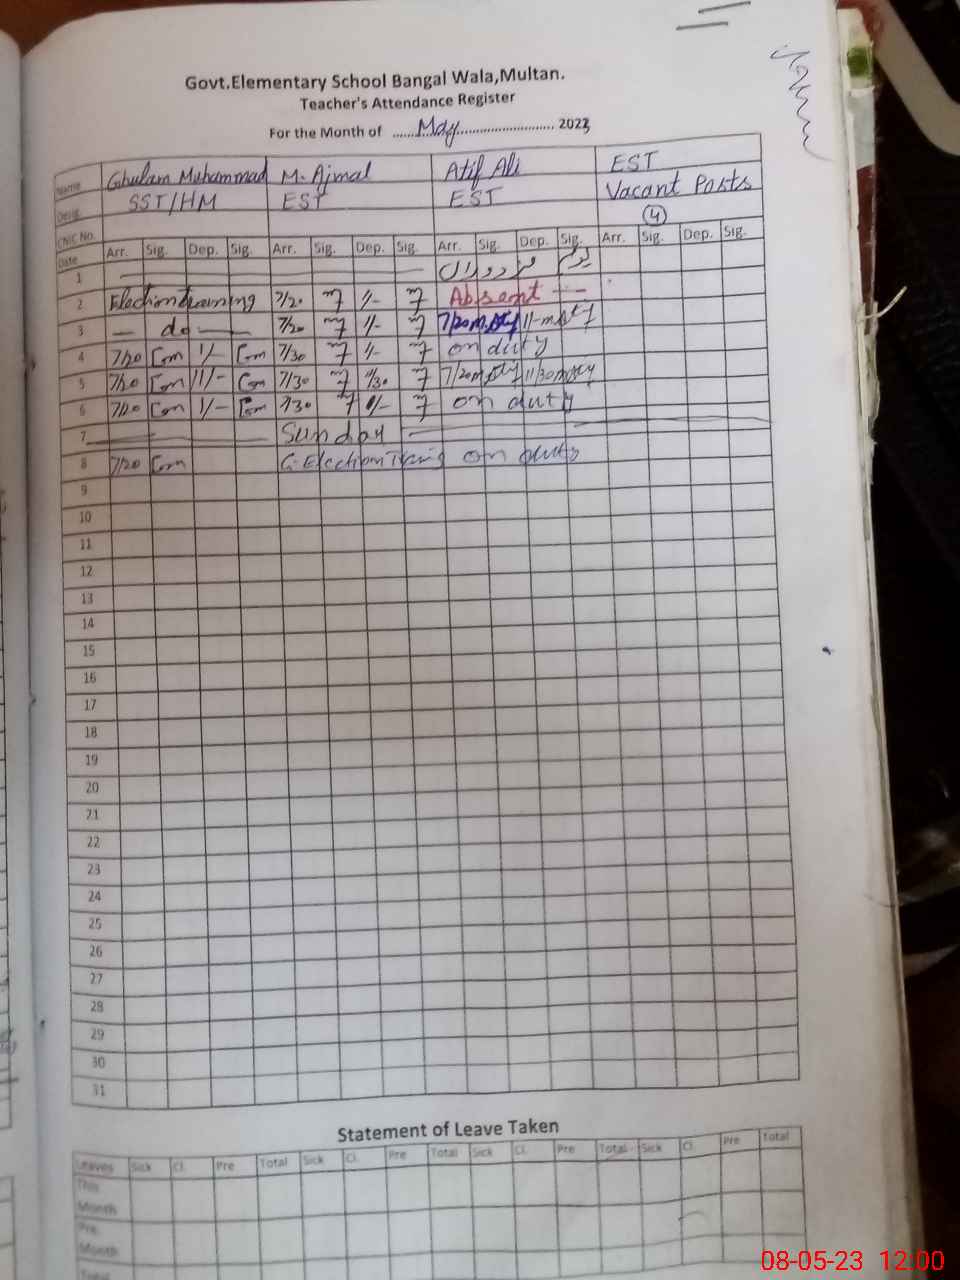 Govt.Elementary School Bangal Wala,Multan.
Teacher's Attendance Register
For the Month of ......May............................ 2023
Name Ghulam Muhammad M. Ajmal Atif Ali EST
Desig. SST/HM EST EST Vacant Posts
CNIC No. 4
Date Arr. Sig. Dep. Sig. Arr. Sig. Dep. Sig. Arr. Sig. Dep. Sig. Arr. Sig. Dep. Sig.
1
2 Election training 7/20 1/- Absent
3 — do — 7/20 1/- 7/20
4 7/20 1/- 7/30 1/- on duty
5 7/20 11/- 7/30 11/30 7/20 11/30
6 7/20 1/- 7/30 on duty
7 Sunday
8 7/20 Election on duty
9
10
11
12
13
14
15
16
17
18
19
20
21
22
23
24
25
26
27
28
29
30
31
Statement of Leave Taken
Leaves Sick Cl. Pre Total Sick Cl. Pre Total Sick Cl. Pre Total Sick Cl. Pre Total
This
Month
Pre.
Month
Total
08-05-23 12:00